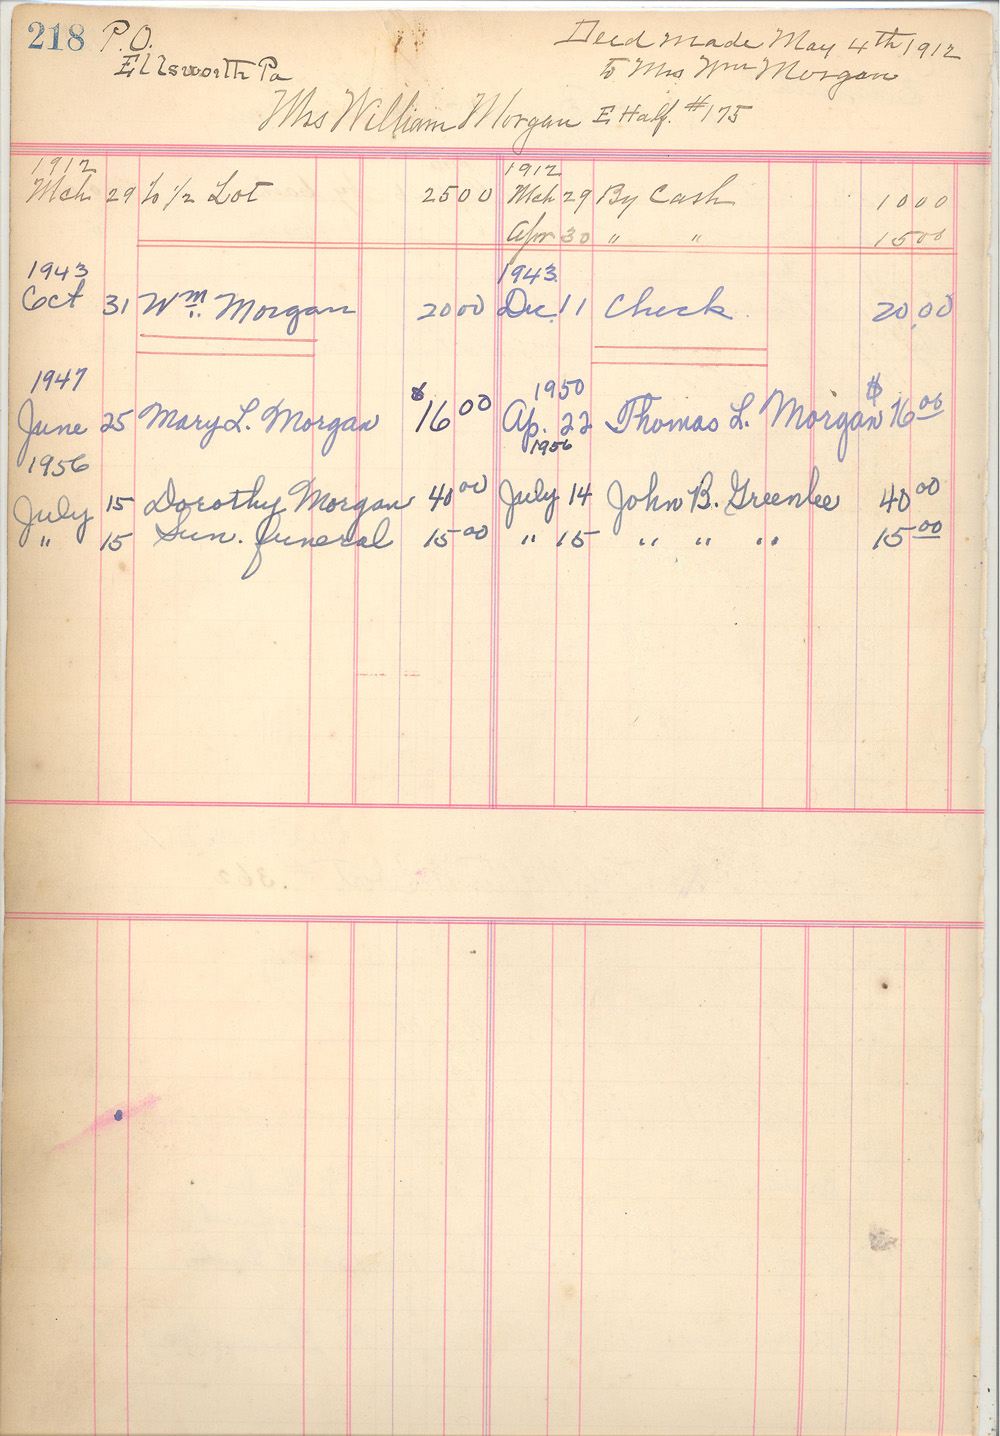 218 P.O. Deed made May 4th 1912
Ellsworth Pa to Mrs Wm Morgan
Mrs William Morgan E Half. #175
1912 1912
Mch 29 to 1/2 Lot 2500 Mch 29 By Cash 1000
Apr 30 " " 1500
1943 1943
Oct 31 Wm. Morgan 2000 Dec. 11 Check 20.00
1947 1950
June 25 Mary L. Morgan $16 00 Ap. 22 Thomas L. Morgan $16 00
1956 1956
July 15 Dorothy Morgan 40 00 July 14 John B. Greenlee 40 00
" 15 Sun. funeral 15 00 " 15 " " " 15 00